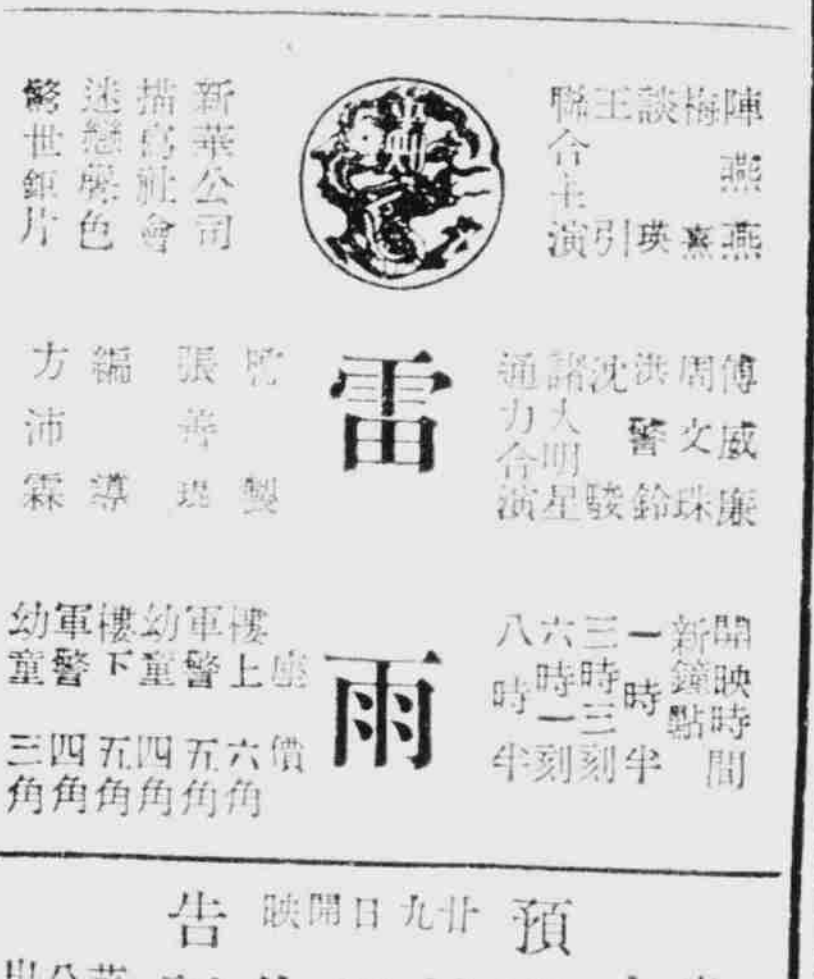 陳燕燕
梅熹
談瑛
王引
聯合主演
新華公司
描寫社會
迷戀聲色
警世鉅片
傅威廉
周文珠
洪警鈴
沈駿
諸大明星
通力合演
雷雨
製
張善琨
編導
方沛霖
開映時間
新鐘點
一時半
三時三刻
六時一刻
八時半
座價
樓上六角
軍警五角
幼童四角
樓下五角
軍警四角
幼童三角
預告
廿九日開映